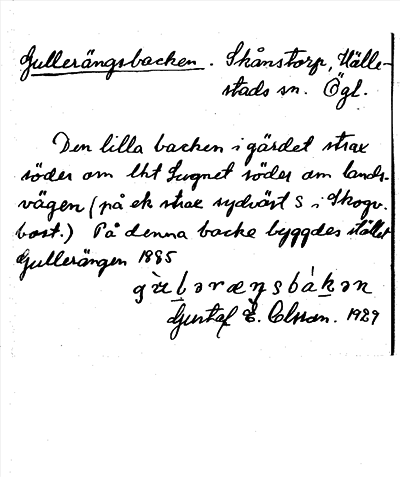 Gullerängsbacken. Skånstorp, Hälle-
stads sn. Ögl.
Den lilla backen i gärdet strax
söder om lht Lugnet söder om lands-
vägen (på ek strax sydväst S i Skogv.
bost.) På denna backe byggdes stället
Gullerängen 1885
Gustaf E. Olsson. 1929